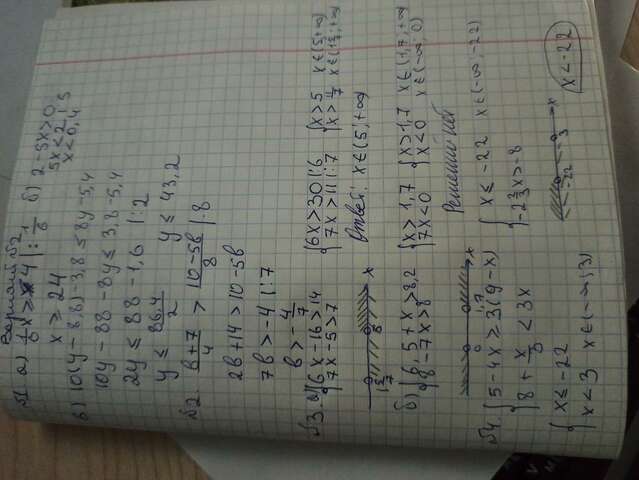 Вариант №2
№1. а) 1/6 x ≥ 4 |: 1/6
x ≥ 24
б) 2-5x>0
5x<2 |:5
x<0,4
в) 10(y-8,8)-3,8 ≤ 8y-5,4
10y-88-8y ≤ 3,8-5,4
2y ≤ 88-1,6 |:2
y ≤ 86,4/2 y ≤ 43,2
№2. (b+7)/4 > (10-5b)/8 |·8
2b+14>10-5b
7b>-4 |:7
b>-4/7
№3. а) {6x-16>14
{7x-5>7
{6x>30 |:6
{7x>11 |:7
{x>5 x∈(5;+∞)
{x>
x
Ответ: x∈(5;+∞)
б) {6,5+x>8,2
{8-7x>8
{x>1,7
{7x<0
{x>1,7 x∈(1,7;+∞)
{x<0 x∈(-∞;0)
0 1,7 x
Решений нет
№4. {5-4x ≥ 3(9-x)
{8+ <3x
{x ≤ -22 x∈(-∞;-22)
>-8
{x ≤ -22
{x<3 x∈(-∞;3)
-22 3 x
x<-22